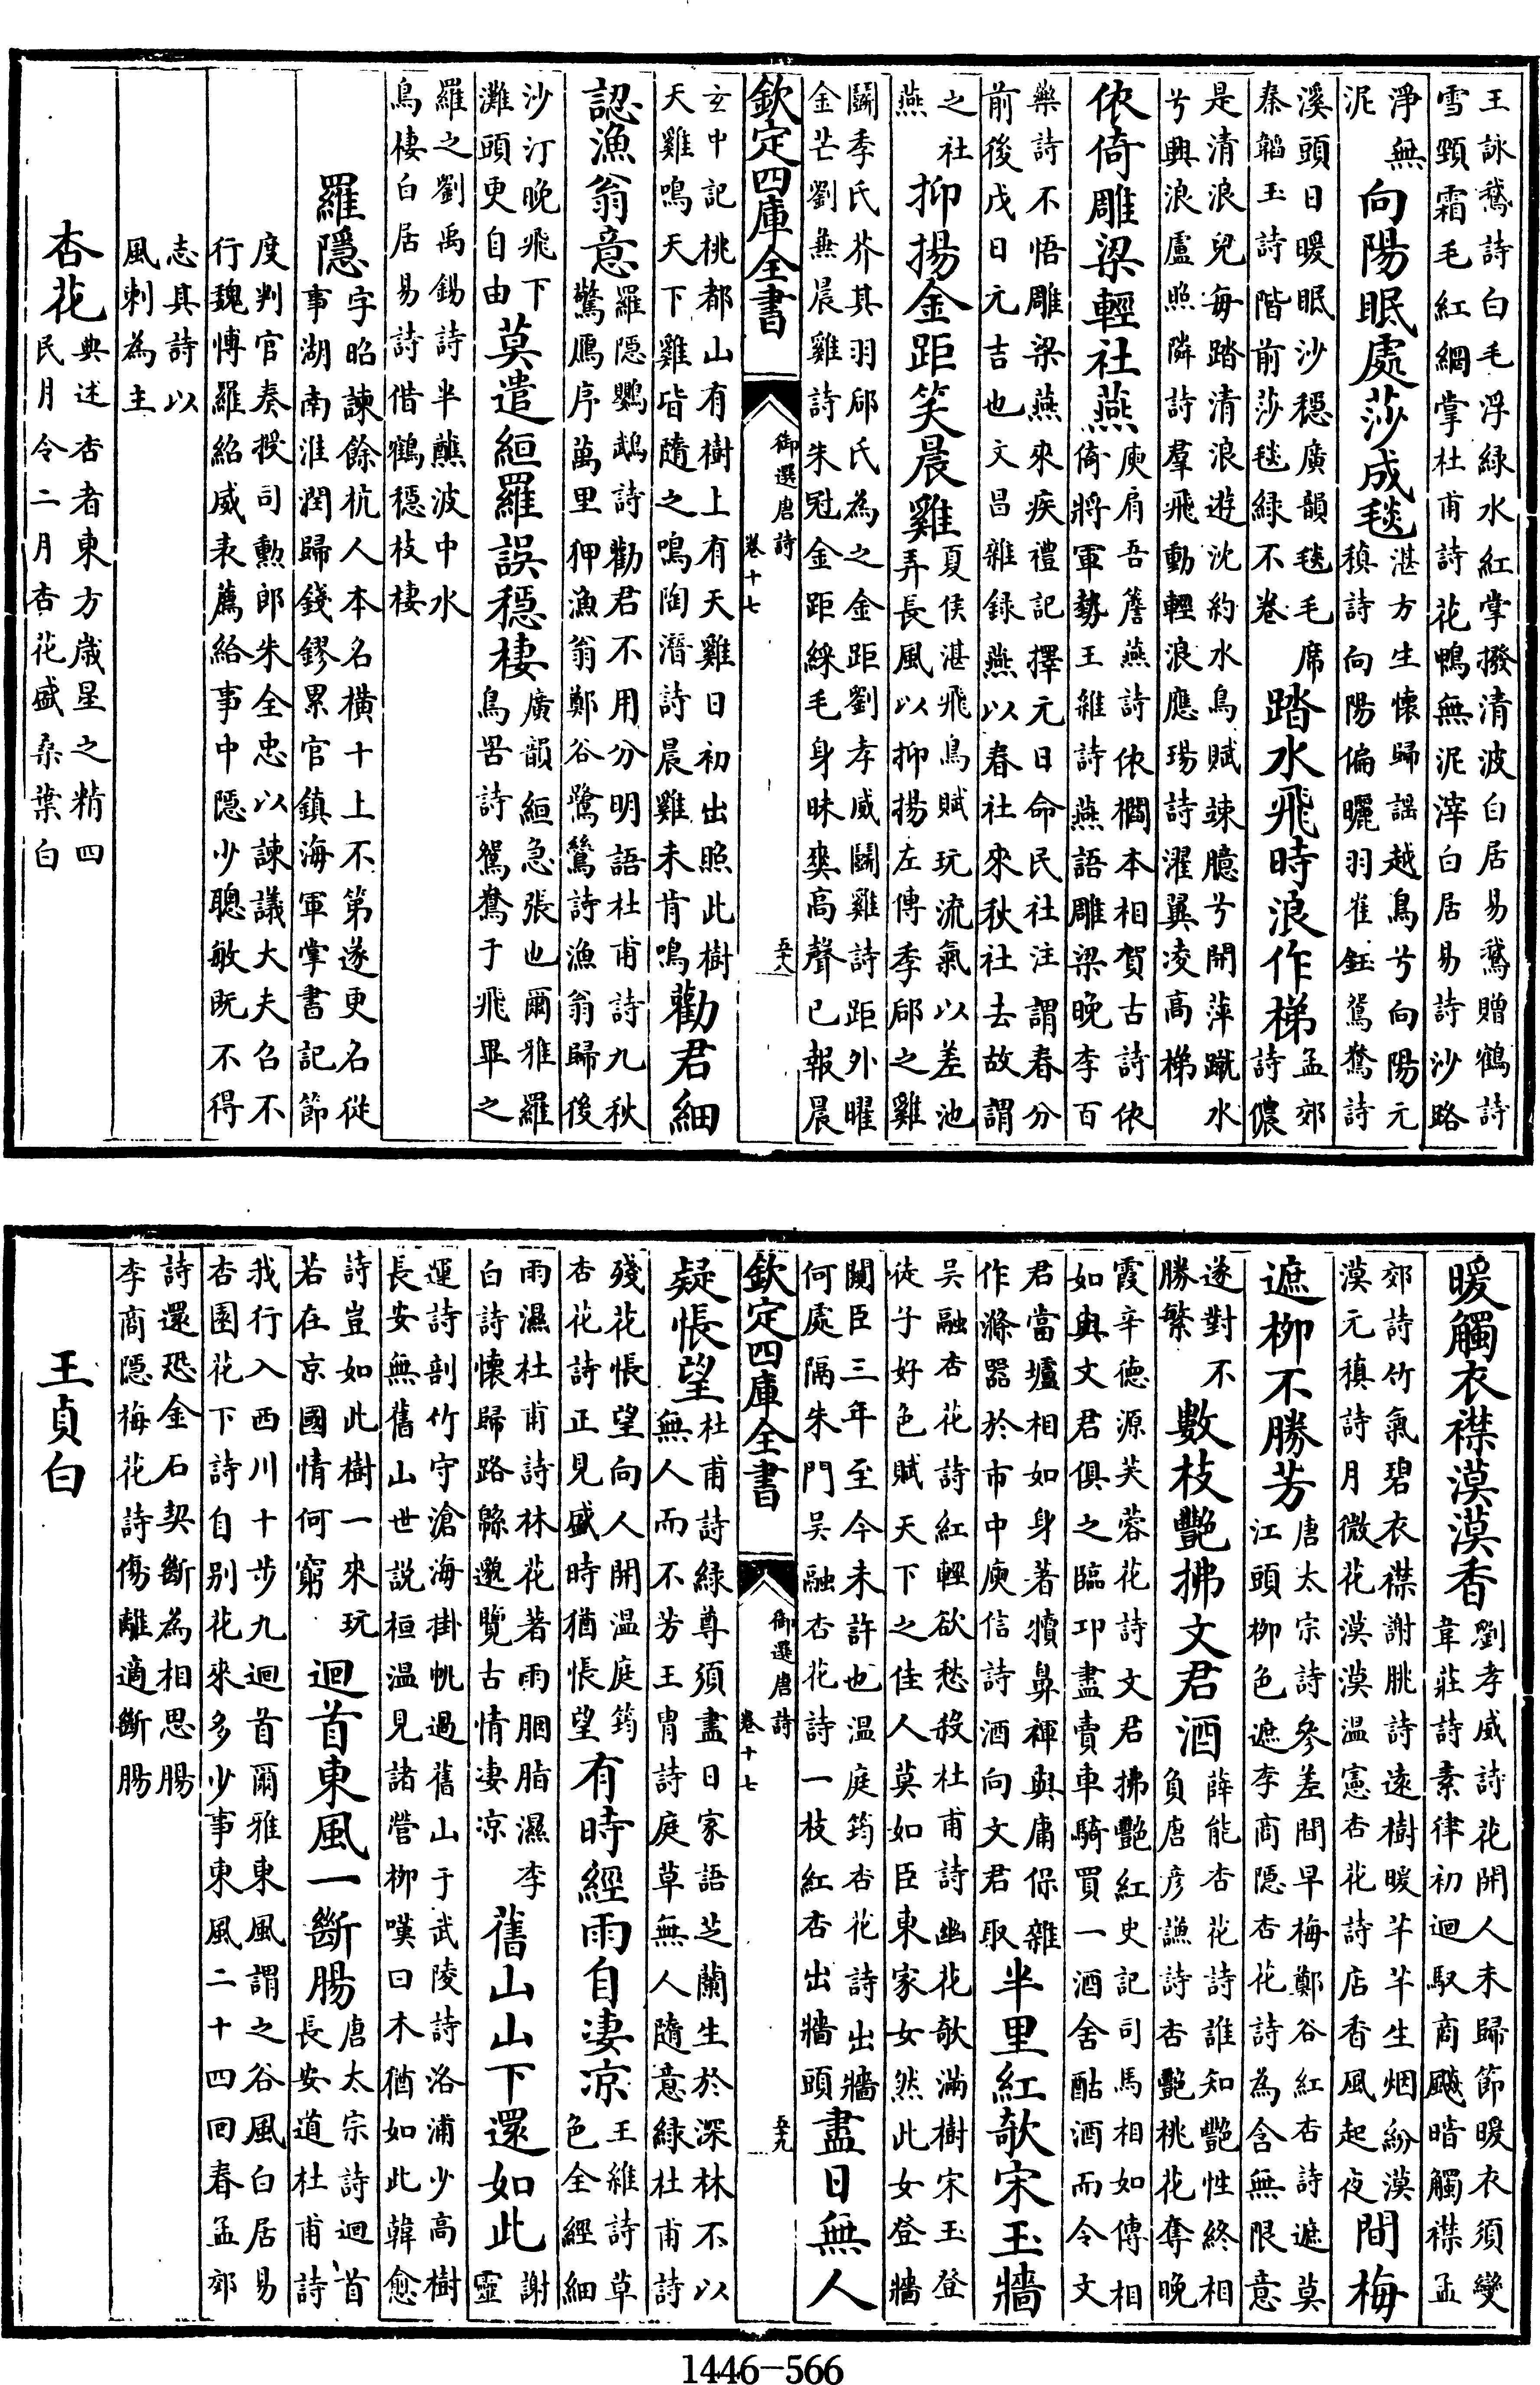 王詠鵞詩白毛浮緑水紅掌撥清波白居易鵞贈鶴詩
雪頸霜毛紅網掌杜甫詩花鴨無泥滓白居易詩沙路
淨無
泥
向陽眠處莎成毯
湛方生懷歸謡越鳥兮向陽元
稹詩向陽偏曬羽崔鈺鴛鴦詩
溪頭日暖眠沙穏廣韻毯毛席
秦韜玉詩階前莎毯緑不卷
踏水飛時浪作梯
孟郊
詩儂
是清浪兒每踏清浪遊沈約水鳥賦竦臆兮開萍蹴水
兮興浪盧照隣詩羣飛動輕浪應瑒詩濯翼凌高梯
依倚雕梁輕社燕
庾肩吾簷燕詩依櫚本相賀古詩依
倚將軍勢王維詩燕語雕梁晚李百
藥詩不悟雕梁燕來疾禮記擇元日命民社注謂春分
前後戊日元吉也文昌雜録燕以春社來秋社去故謂
之社
燕
抑揚金距笑晨雞
夏侯湛飛鳥賦玩流氣以差池
弄長風以抑揚左傳季郈之雞
鬭季氏芥其羽郈氏為之金距劉孝威鬭雞詩距外曜
金芒劉無晨雞詩朱冠金距綵毛身昧爽高聲已報晨
欽定四庫全書
御選唐詩
卷十七
五十八
玄中記桃都山有樹上有天雞日初出照此樹
天雞鳴天下雞皆隨之鳴陶潛詩晨雞未肯鳴
勸君細
認漁翁意
羅隱鸚鵡詩勸君不用分明語杜甫詩九秋
驚鴈序萬里狎漁翁鄭谷鷺鷥詩漁翁歸後
沙汀晚飛下
灘頭更自由
莫遣絙羅誤穏棲
廣韻絙急張也爾雅羅
鳥罟詩鴛鴦于飛畢之
羅之劉禹錫詩半蘸波中水
鳥棲白居易詩借鶴穏枝棲
羅隱
字昭諫餘杭人本名横十上不第遂更名從
事湖南淮潤歸錢鏐累官鎮海軍掌書記節
度判官奏授司勲郎朱全忠以諫議大夫召不
行魏愽羅紹威表薦給事中隱少聰敏既不得
志其詩以
風刺為主
杏花
典述杏者東方歲星之精四
民月令二月杏花盛桑葉白
暖觸衣襟漠漠香
劉孝威詩花開人未歸節暖衣須變
韋莊詩素律初迴馭商飈暗觸襟孟
郊詩竹氣碧衣襟謝朓詩遠樹暖芊芊生烟紛漠
漠元稹詩月微花漠漠温憲杏花詩店香風起夜
間梅
遮柳不勝芳
唐太宗詩參差間早梅鄭谷紅杏詩遮莫
江頭柳色遮李商隱杏花詩為含無限意
遂對不
勝繁
數枝艷拂文君酒
薛能杏花詩誰知艷性終相
負唐彦謙詩杏艷桃花奪晚
霞辛德源芙蓉花詩文君拂艷紅史記司馬相如傳相
如與文君俱之臨邛盡賣車騎買一酒舍酤酒而令文
君當壚相如身著犢鼻褌與庸保雜
作滌器於市中庾信詩酒向文君取
半里紅欹宋玉牆
吴融杏花詩紅輕欲愁殺杜甫詩幽花欹滿樹宋玉登
徒子好色賦天下之佳人莫如臣東家女然此女登牆
闚臣三年至今未許也温庭筠杏花詩出牆
何處隔朱門吴融杏花詩一枝紅杏出牆頭
盡日無人
欽定四庫全書
御選唐詩
卷十七
五十九
疑悵望
杜甫詩緑尊須盡日家語芝蘭生於深林不以
無人而不芳王胄詩庭草無人隨意緑杜甫詩
殘花悵望向人開温庭筠
杏花詩正見盛時猶悵望
有時經雨自凄凉
王維詩草
色全經細
雨濕杜甫詩林花著雨胭脂濕李
白詩懷歸路緜邈覽古情凄凉
舊山山下還如此
謝
靈
運詩剖竹守滄海掛帆過舊山于武陵詩洛浦少高樹
長安無舊山世説桓温見諸營柳嘆曰木猶如此韓愈
詩豈如此樹一來玩
若在京國情何窮
迴首東風一斷腸
唐太宗詩迴首
長安道杜甫詩
我行入西川十步九迴首爾雅東風謂之谷風白居易
杏園花下詩自别花來多少事東風二十四回春孟郊
詩還恐金石契斷為相思腸
李商隱梅花詩傷離適斷腸
王貞白
1446-566